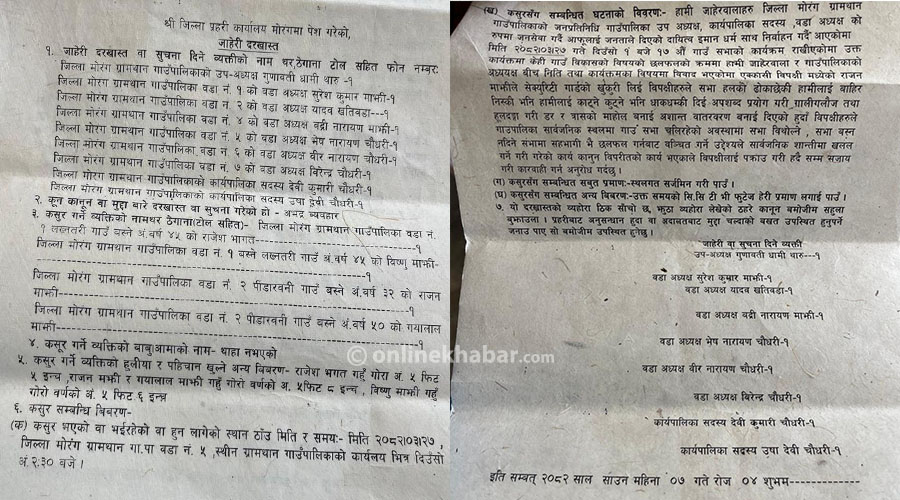 श्री जिल्ला प्रहरी कार्यालय मोरंगमा पेश गरेको,
जाहेरी दरखास्त
१. जाहेरी दरखास्त वा सुचना दिने व्यक्तीको नाम थर,ठेगाना टोल सहित फोन नम्बर:
जिल्ला मोरंग ग्रामथान गाउँपालिकाको उप-अध्यक्ष गुणावती धामी थारु -१
जिल्ला मोरंग ग्रामथान गाउँपालिका वडा नं. १ को वडा अध्यक्ष सुरेश कुमार माझी-१
जिल्ला मोरंग ग्रामथान गाउँपालिका वडा नं. २ को वडा अध्यक्ष यादव खतिवडा---१
जिल्ला मोरंग ग्रामथान गाउँपालिका वडा नं. ४ को वडा अध्यक्ष बद्री नारायण माझी-१
जिल्ला मोरंग ग्रामथान गाउँपालिका वडा नं. ५ को वडा अध्यक्ष भेष नारायण चौधरी-१
जिल्ला मोरंग ग्रामथान गाउँपालिका वडा नं. ६ को वडा अध्यक्ष बीर नारायण चौधरी-१
जिल्ला मोरंग ग्रामथान गाउँपालिका वडा नं. ७ को वडा अध्यक्ष बिरेन्द्र चौधरी-१
जिल्ला मोरंग ग्रामथान गाउँपालिकाको कार्यपालिका सदस्य देवी कुमारी चौधरी-१
जिल्ला मोरंग ग्रामथान गाउँपालिकाको कार्यपालिका सदस्य उषा देवी चौधरी-१
२. कुन कानून वा मुद्दा बारे दरखास्त वा सुचना गरेको हो - अभद्र व्यवहार
३. कसुर गर्ने व्यक्तिको नामथर ठेगाना(टोल सहित)- जिल्ला मोरंग ग्रामथान गाउँपालिका वडा नं.
१ लख्नतरी गाउँ बस्ने अं.वर्ष ४५ को राजेश भगत---१
जिल्ला मोरंग ग्रामथान गाउँपालिका वडा नं. १ बस्ने लख्नतरी गाउँ अं.वर्ष ४५ को विष्णु माझी-
---१
जिल्ला मोरंग ग्रामथान गाउँपालिका वडा नं. २ पीडारवनी गाउँ बस्ने अं.बर्ष ३२ को राजन
माझी---१
जिल्ला मोरंग ग्रामथान गाउँपालिका वडा नं. २ पीडारवनी गाउँ बस्ने अं.बर्ष ५० को गयालाल
माझी---१
४. कसूर गर्ने व्यक्तिको बाबुआमाको नाम- थाहा नभएको
५. कसुर गर्ने व्यक्तिको हुलीया र पहिचान खुल्ने अन्य बिबरण- राजेश भगत गहुँ गोरा अं. ५ फिट
५ इन्च ,राजन मझी र गयालाल माझी गहुँ गोरो वर्णको अं. ५फिट ८ इन्च , विष्णु माझी गहुँ
गोरो वर्णको अं. ५ फिट ६ इन्च
६. कसुर सम्बन्धि बिबरण-
(क) कसुर भएको वा भईरहेको वा हुन लागेको स्थान ठाँउ मिति र समय:- मिति २०८२।०३।२७ ,
जिल्ला मोरंग ग्रामथान गा.पा वडा नं. ५ ,स्थीत ग्रामथान गाउँपालिकाको कार्यालय भित्र दिउँसो
अं.२:३० बजे ।
(ख) कसुरसँग सम्बन्धित घटनाको विवरण:- हामी जाहेरवालाहरु जिल्ला मोरंग ग्रामथान
गाउँपालिकाको जनप्रतिनिधि गाउँपालिका उप अध्यक्ष, कार्यपालिका सदस्य ,वडा अध्यक्ष को
रुपमा जनसेवा गर्दै आफूलाई जनताले दिएको दायित्व इमान धर्म साथ निर्वाहन गर्दै आएकोमा
मिति २०८२।०३।२७ गते दिउँसो १ बजे १७ औं गाउँ सभाको कार्यक्रम राखीएकोमा उक्त
कार्यक्रममा केही गाउँ विकासको विषयको छलफलको क्रममा हामी जाहेरवाला र गाउँपालिकाको
अध्यक्ष बीच निति तथा कार्यक्रमका विषयमा विवाद भएकोमा एक्कासी विपक्षी मध्येको राजन
माझीले सेक्युरिटी गार्डको खुंकुरी लिई विपक्षीहरुले सभा हलको ढोकाछेकी हामीलाई बाहिर
निस्की भनि हामीलाई काट्ने कुट्ने भनि धाकधम्की दिई अपशब्द प्रयोग गरी ,गालीगलौज तथा
हुलदङ्गा गरी डर र त्रासको माहोल बनाई अशान्त वातरवरण बनाई दिएको हुदाँ विपक्षीहरुले
गाउँपालिका सार्वजनिक स्थलमा गाउँ सभा चलिरहेको अवस्थामा सभा विथोल्ने , सभा बस्न
नदिने सभामा सहभागी भै छलफल गर्नबाट वञ्चित गर्ने उद्देश्यले सार्वजनिक शान्तीमा खलल
गर्ने गरी गरेको कार्य कानुन विपरीतको कार्य भएकाले विपक्षीलाई पक्राउ गरी हदै सम्म सजाय
गरी कारवाही गर्न अनुरोध गर्दछु ।
(ग) कसुरसँग सम्बन्धित सबुत प्रमाण:-स्थलगत सर्जमिन गरी पाउँ ।
(घ) कसुरसँग सम्बन्धित अन्य बिबरण:-उत्त समयको सि.सि टी भी फुटेज हेरी प्रमाण लगाई पाउँ ।
७. यो दरखास्तको व्यहोरा ठिक साँचो छ, भुठा व्यहोरा लेखेको ठहरे कानून बमोजीम सहुला
बुझाउला । प्रहरीबाट अनुसन्धान हुदा वा अदालतबाट मुद्दा चल्दाको बखत उपस्थित हुनुपर्ने
जनाउ पाए सो बमोजीम उपस्थित हुनेछु ।
जाहेरी वा सुचना दिने व्यक्ती
उप-अध्यक्ष गुणावती धामी थारु---१
वडा अध्यक्ष सुरेश कुमार माझी-१
वडा अध्यक्ष यादव खतिवडा-१
वडा अध्यक्ष बद्री नारायण माझी-१
वडा अध्यक्ष भेष नारायण चौधरी-१
वडा अध्यक्ष वीर नारायण चौधरी-१
वडा अध्यक्ष बिरेन्द्र चौधरी-१
कार्यपालिका सदस्य देवी कुमारी चौधरी-१
कार्यपालिका सदस्य उषा देवी चौधरी-१
इति सम्बत् २०८२ साल साउन महिना ०७ गते रोज ०४ शुभम---
© onlinekhabar.com